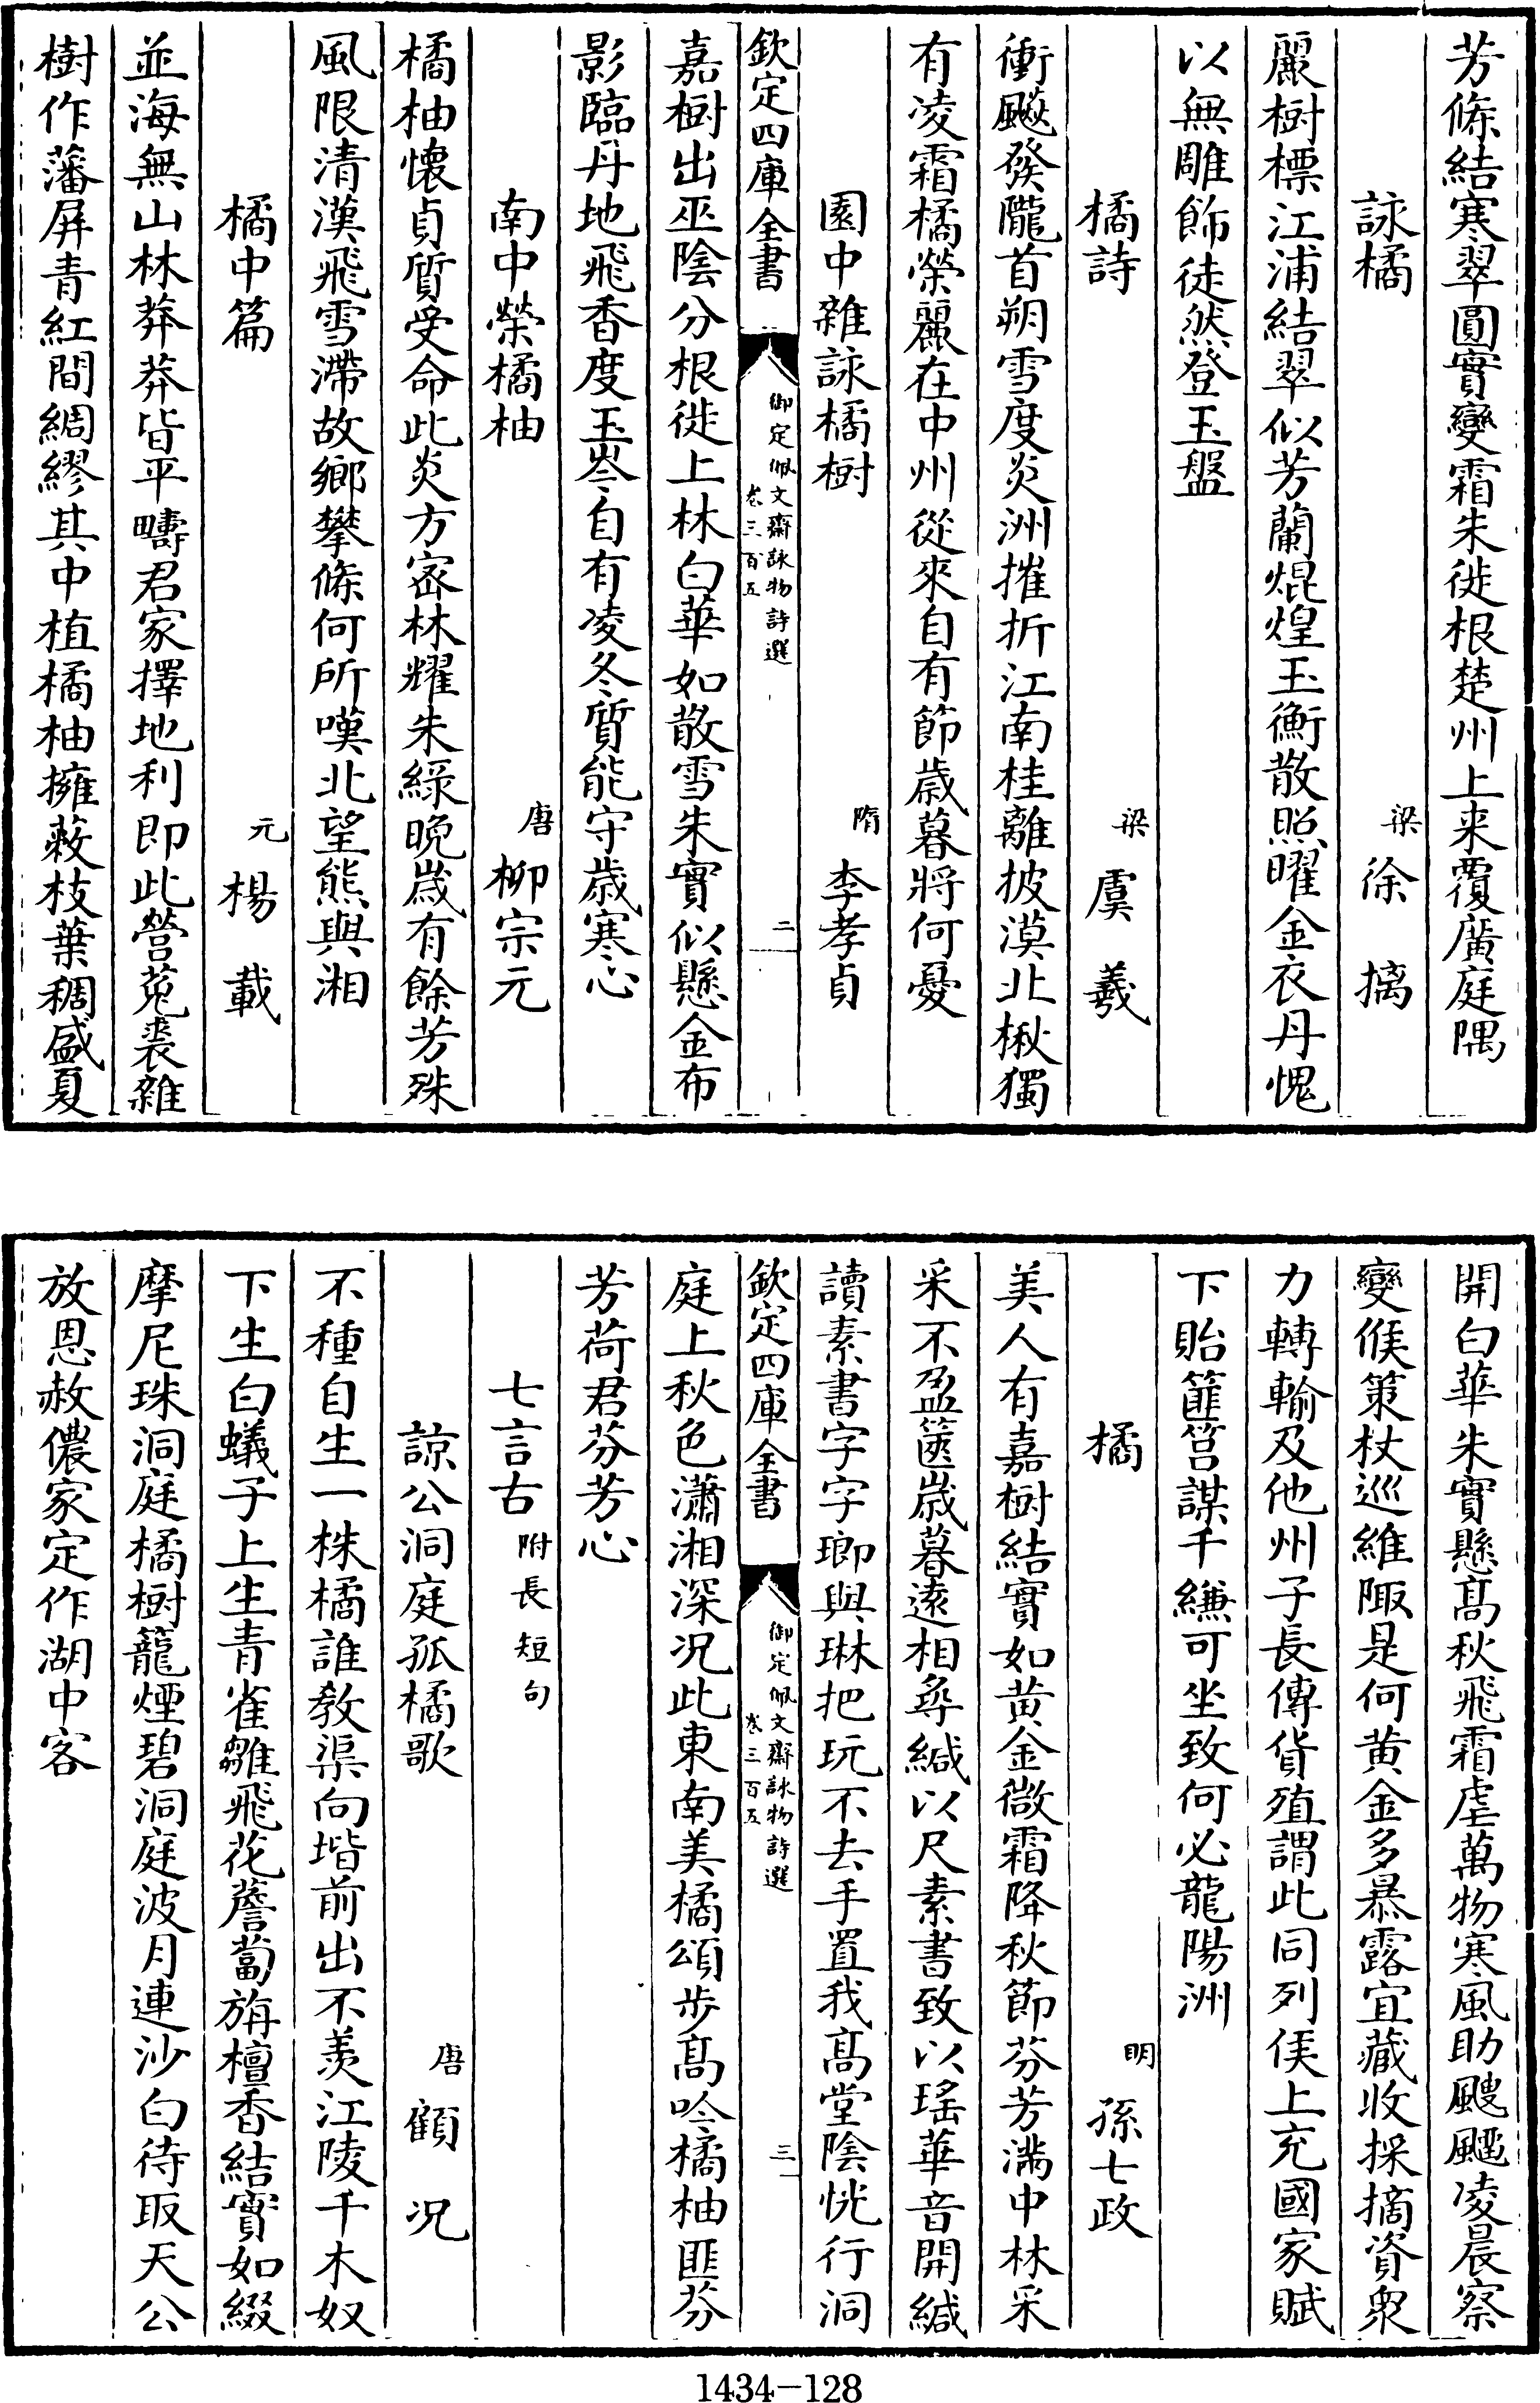 芳條結寒翠圓實變霜朱徙根楚州上来覆廣庭隅
詠橘 梁 徐摛
麗樹標江浦結翠似芳蘭焜煌玉衡散照曜金衣丹愧
以無雕飾徒然登玉盤
橘詩 梁 虞羲
衝飈發隴首朔雪度炎洲摧折江南桂離披漠北楸獨
有凌霜橘榮麗在中州從來自有節歲暮將何憂
園中雜詠橘樹 隋 李孝貞
欽定四庫全書 御定佩文齋詠物詩選 卷三百五 二
嘉樹出巫陰分根徙上林白華如散雪朱實似懸金布
影臨丹地飛香度玉岑自有凌冬質能守歲寒心
南中榮橘柚 唐 柳宗元
橘柚懷貞質受命此炎方密林耀朱綠晚歲有餘芳殊
風限清漢飛雪滯故鄉攀條何所嘆北望熊與湘
橘中篇 元 楊載
並海無山林莽莽皆平疇君家擇地利即此營菟裘雜
樹作藩屏青紅間綢繆其中植橘柚擁蔽枝葉稠盛夏
開白華朱實懸高秋飛霜虐萬物寒風助颼飀凌晨察
變候策杖巡維陬是何黄金多暴露宜藏收採摘資衆
力轉輸及他州子長傳貨殖謂此同列侯上充國家賦
下貽篚筥謀千縑可坐致何必龍陽洲
橘 明 孫七政
美人有嘉樹結實如黄金微霜降秋節芬芳滿中林采
采不盈篋歲暮遠相尋緘以尺素書致以瑤華音開緘
讀素書字字瑯與琳把玩不去手置我高堂陰恍行洞
欽定四庫全書 御定佩文齋詠物詩選 卷三百五 三
庭上秋色瀟湘深况此東南美橘頌步高吟橘柚匪芬
芳荷君芬芳心
七言古 附長短句
諒公洞庭孤橘歌 唐 顧况
不種自生一株橘誰教渠向堦前出不羨江陵千木奴
下生白蟻子上生青雀雛飛花薝蔔旃檀香結實如綴
摩尼珠洞庭橘樹籠煙碧洞庭波月連沙白待取天公
放恩赦儂家定作湖中客
1434—128